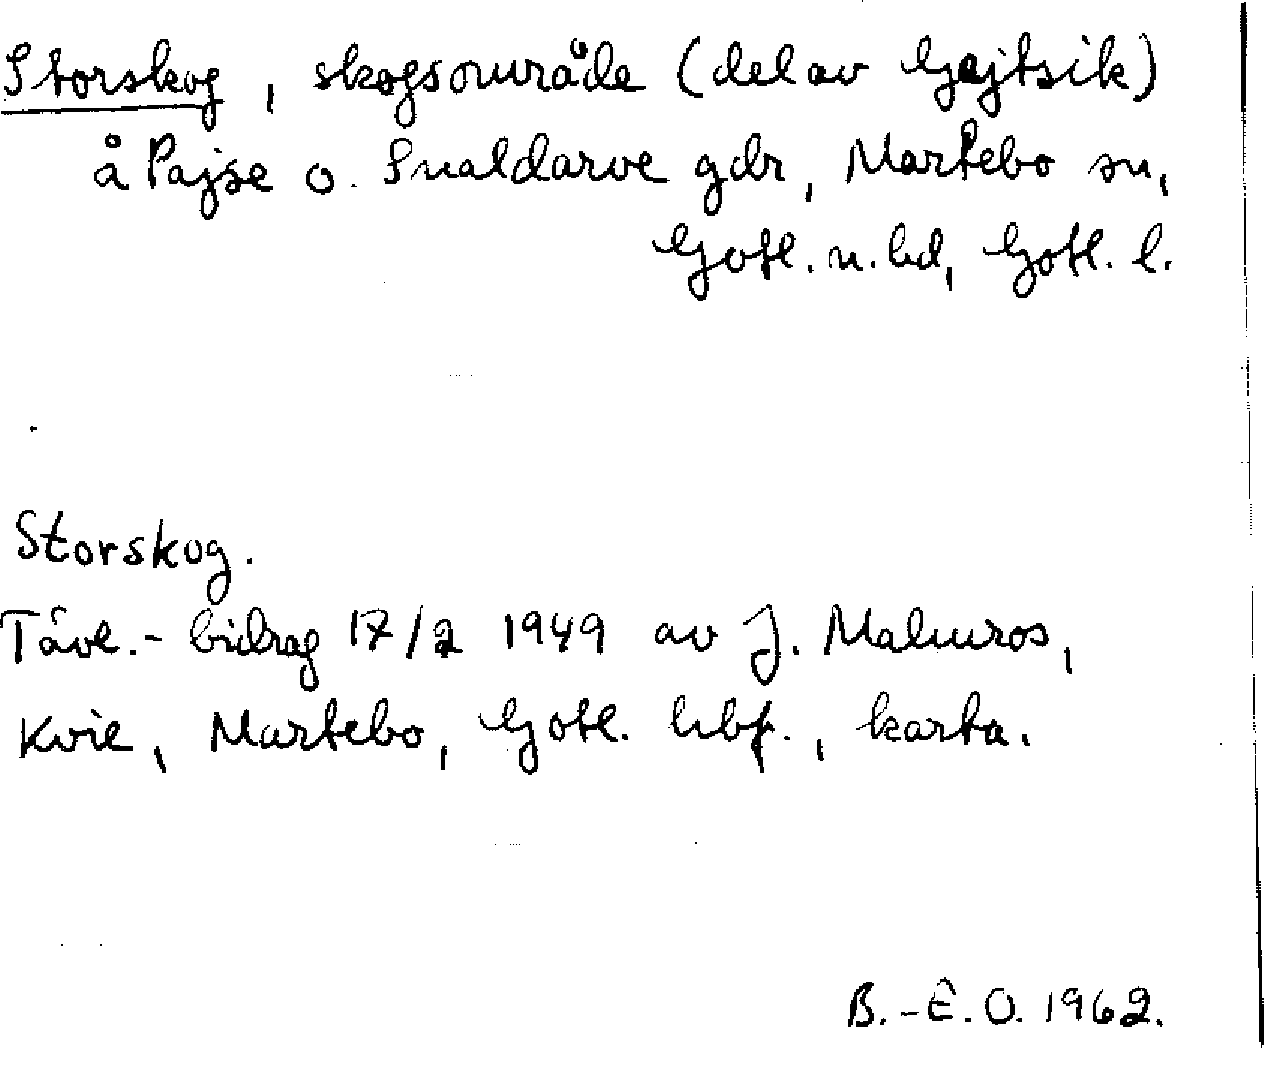 Storskog, skogsområde (del av Gajtsik)
å Pajse o. Smaldarve gdr, Martebo sn,
Gotl. n. hd, Gotl. l.
Storskog.
Tävl.- bidrag 17/2 1949 av J. Malmros,
Kvie, Martebo, Gotl. hbf., karta.
B.-E.O. 1962.